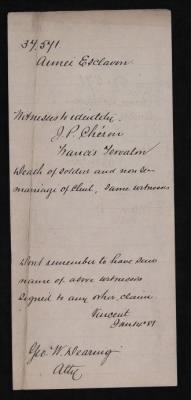 37,571
Aimeé Esclavon
Witnesses to identity.
J. P. Chéron
Francis Tervalon
Death of soldier and non re-
marriage of Clmt, same witnesses
Dont remember to have seen
name of above witnesses
signed to any other claim.
Vincent
Jan 14 81
Geo. W. Dearing
Atty